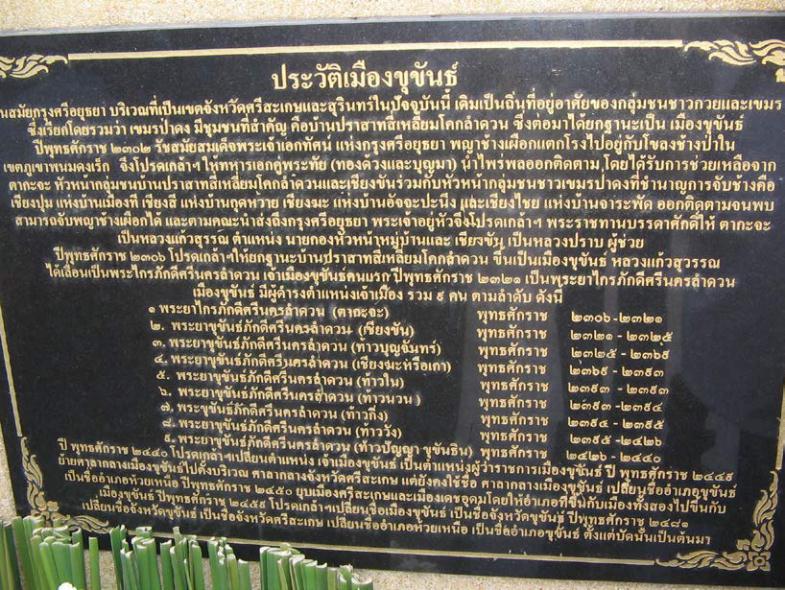 ประวัติเมืองขุขันธ์
นสมัยกรุงศรีอยุธยา บริเวณที่เป็นเขตจังหวัดศรีสะเกษและสุรินทร์ในปัจจุบันนี้ เดิมเป็นถิ่นที่อยู่อาศัยของกลุ่มชนชาวกวยและเขมร
ซึ่งเรียกโดยรวมว่า เขมรป่าดง มีชุมชนที่สำคัญ คือบ้านปราสาทสี่เหลี่ยมโคกลำดวน ซึ่งต่อมาได้ยกฐานะเป็น เมืองขุขันธ์
ปีพุทธศักราช ๒๓๐๒ รัชสมัยสมเด็จพระเจ้าเอกทัศน์ แห่งกรุงศรีอยุธยา พญาช้างเผือกแตกโรงไปอยู่กับโขลงช้างป่าใน
เขตภูเขาพนมดงเร็ก จึงโปรดเกล้าฯ ให้ทหารเอกคู่พระทัย (ทองด้วงและบุญมา) นำไพร่พลออกติดตาม โดยได้รับการช่วยเหลือจาก
ตากะจะ หัวหน้ากลุ่มชนบ้านปราสาทสี่เหลี่ยมโคกลำดวนและเชียงขันร่วมกับหัวหน้ากลุ่มชนชาวเขมรป่าดงที่ชำนาญการจับช้างคือ
เชียงปุ่ม แห่งบ้านเมืองที เชียงสี แห่งบ้านกุดหวาย เชียงฆะ แห่งบ้านอัจจะปะนึง และเชียงไชย แห่งบ้านจาระพัด ออกติดตามจนพบ
สามารถจับพญาช้างเผือกได้ และตามคณะนำส่งถึงกรุงศรีอยุธยา พระเจ้าอยู่หัวจึงโปรดเกล้าฯ พระราชทานบรรดาศักดิ์ให้ ตากะจะ
เป็นหลวงแก้วสุวรรณ ตำแหน่ง นายกองหัวหน้าหมู่บ้านและ เชียงขัน เป็นหลวงปราบ ผู้ช่วย
ปีพุทธศักราช ๒๓๐๖ โปรดเกล้าฯให้ยกฐานะบ้านปราสาทสี่เหลี่ยมโคกลำดวน ขึ้นเป็นเมืองขุขันธ์ หลวงแก้วสุวรรณ
ได้เลื่อนเป็นพระไกรภักดีศรีนครลำดวน เจ้าเมืองขุขันธ์คนแรก ปีพุทธศักราช ๒๓๒๑ เป็นพระยาไกรภักดีศรีนครลำดวน
เมืองขุขันธ์ มีผู้ดำรงตำแหน่งเจ้าเมือง รวม ๙ คน ตามลำดับ ดังนี้
๑ พระยาไกรภักดีศรีนครลำดวน (ตากะจะ) พุทธศักราช ๒๓๐๖-๒๓๒๑
๒. พระยาขุขันธ์ภักดีศรีนครลำดวน (เชียงขัน) พุทธศักราช ๒๓๒๑ - ๒๓๒๕
๓. พระยาขุขันธ์ภักดีศรีนครลำดวน (ท้าวบุญจันทร์) พุทธศักราช ๒๓๒๕ - ๒๓๖๙
๔. พระยาขุขันธ์ภักดีศรีนครลำดวน (เชียงฆะหรือเกา) พุทธศักราช ๒๓๖๙ - ๒๓๙๓
๕. พระยาขุขันธ์ภักดีศรีนครลำดวน (ท้าวใน) พุทธศักราช ๒๓๙๓ - ๒๓๙๓
๖. พระยาขุขันธ์ภักดีศรีนครลำดวน (ท้าวนวน ) พุทธศักราช ๒๓๙๓ -๒๓๙๔
๗. พระขุขันธ์ภักดีศรีนครลำดวน (ท้าวกิ่ง) พุทธศักราช ๒๓๙๔ - ๒๓๙๕
๘. พระยาขุขันธ์ภักดีศรีนครลำดวน (ท้าววัง) พุทธศักราช ๒๓๙๕ -๒๔๒๖
๙. พระยาขุขันธ์ภักดีศรีนครลำดวน (ท้าวปัญญา ขุขันธิน) พุทธศักราช ๒๔๒๖ - ๒๔๔๐
ปี พุทธศักราช ๒๔๔๐ โปรดเกล้าฯเปลี่ยนตำแหน่ง เจ้าเมืองขุขันธ์ เป็นตำแหน่งผู้ว่าราชการเมืองขุขันธ์ ปี พุทธศักราช ๒๔๔๙
ย้ายศาลากลางเมืองขุขันธ์ไปตั้งบริเวณ ศาลากลางจังหวัดศรีสะเกษ แต่ยังคงใช้ชื่อ ศาลากลางเมืองขุขันธ์ เปลี่ยนชื่ออำเภอขุขันธ์
เป็นชื่ออำเภอห้วยเหนือ ปีพุทธศักราช ๒๔๕๐ ยุบเมืองศรีสะเกษและเมืองเดชอุดมโดยให้อำเภอที่ขึ้นกับเมืองทั้งสองไปขึ้นกับ
เมืองขุขันธ์ ปีพุทธศักราช ๒๔๕๙ โปรดเกล้าฯเปลี่ยนชื่อเมืองขุขันธ์ เป็นชื่อจังหวัดขุขันธ์ ปีพุทธศักราช ๒๔๘๑
เปลี่ยนชื่อจังหวัดขุขันธ์ เป็นชื่อจังหวัดศรีสะเกษ เปลี่ยนชื่ออำเภอห้วยเหนือ เป็นชื่ออำเภอขุขันธ์ ตั้งแต่บัดนั้นเป็นต้นมา